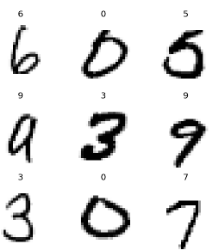 6 0 5
6 0 5
9 3 9
9 3 9
3 0 7
3 0 7